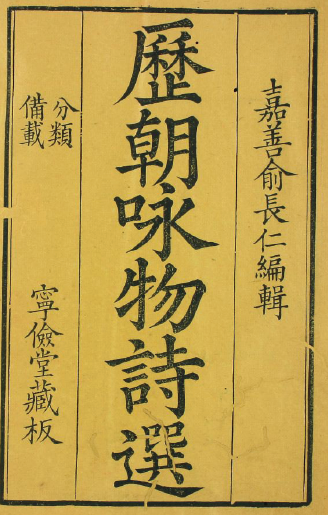 嘉善俞長仁編輯
歷朝咏物詩選
分類
備載
寧儉堂藏板